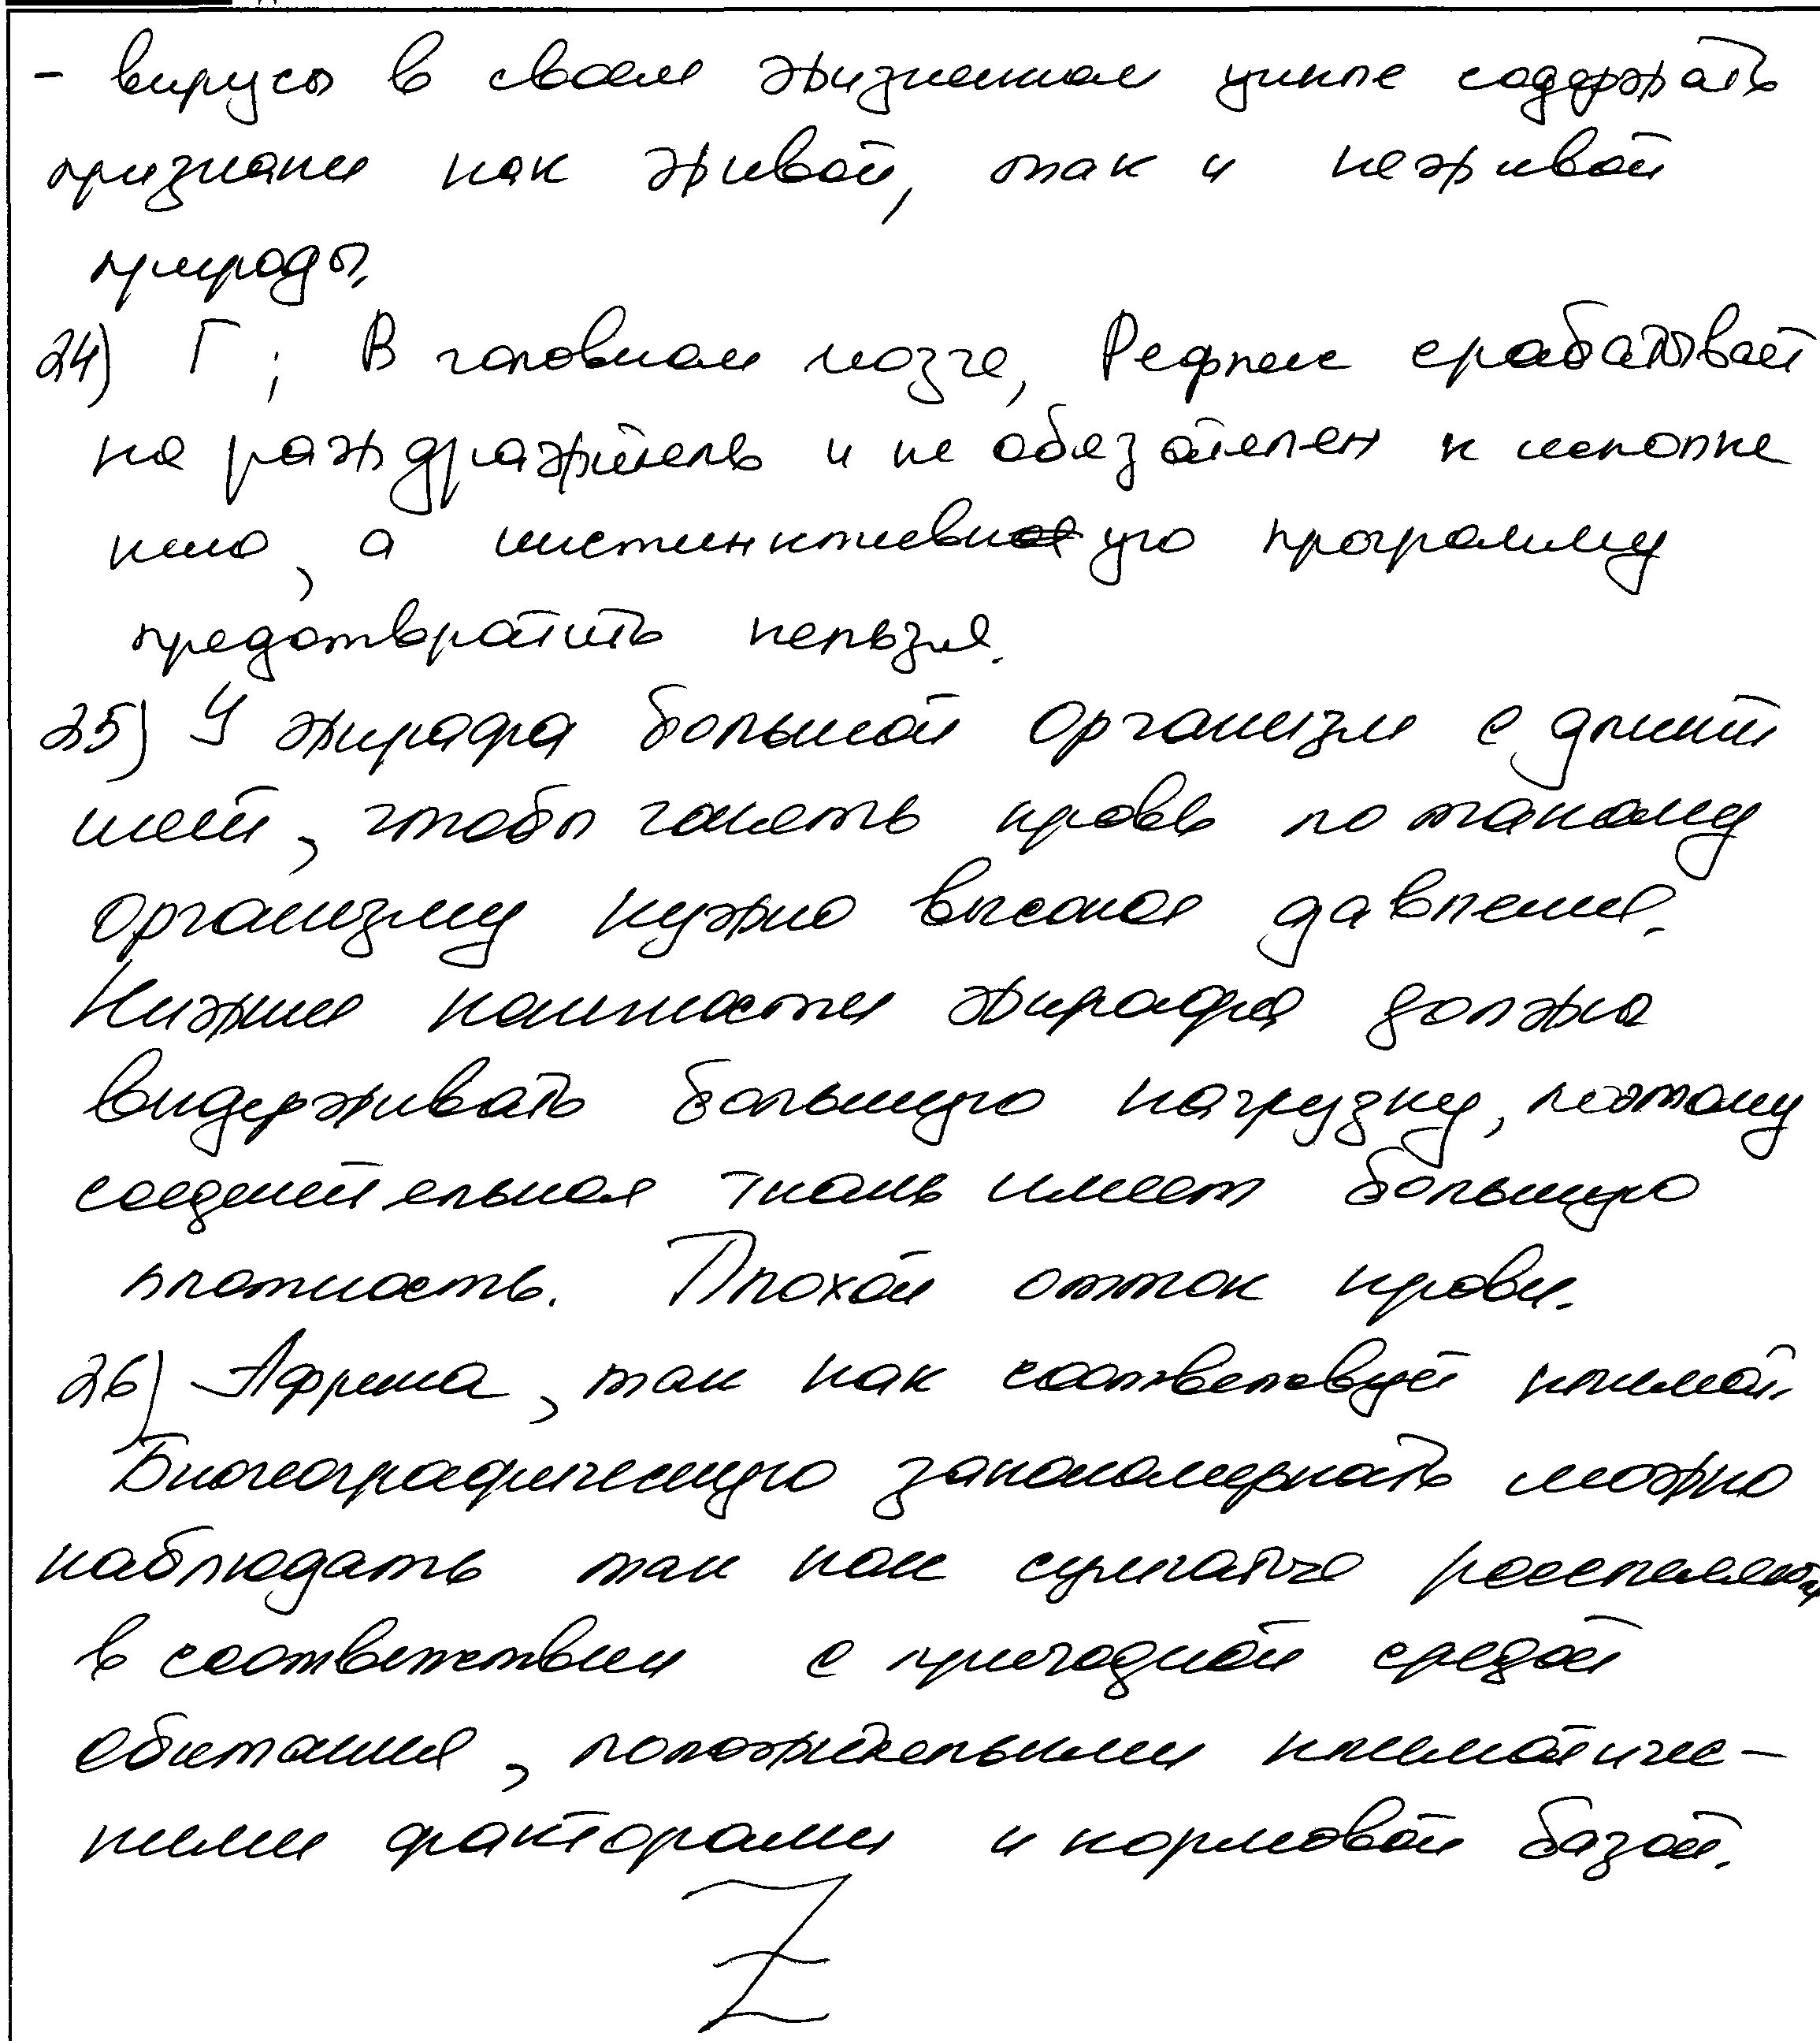 - вирусы в своем жизненном цикле содержать
признаки как живой, так и неживой
природы.
24) Г; В головном мозге, Рефлекс срабатывает
на раждражитель и не обязателен к исполне
нию, а инстинктивную программу
предотвратить нельзя.
25) У жирафа большой организм с длинн
шеей, чтобы гонять кровь по такому
организму нужно высокое давление.
Нижние конечности жирафа должны
видерживать большую нагрузку, поэтому
соединительная ткань имеет большую
плотность. Плохой отток крови.
26) Африка, так как соответствует климат.
Биогеографическую закономерность можно
наблюдать так как сумчатые расселяются
в соответствии с пригодной средой
обитания, положительными климатичес-
кими факторами и кормовой базой.
Z